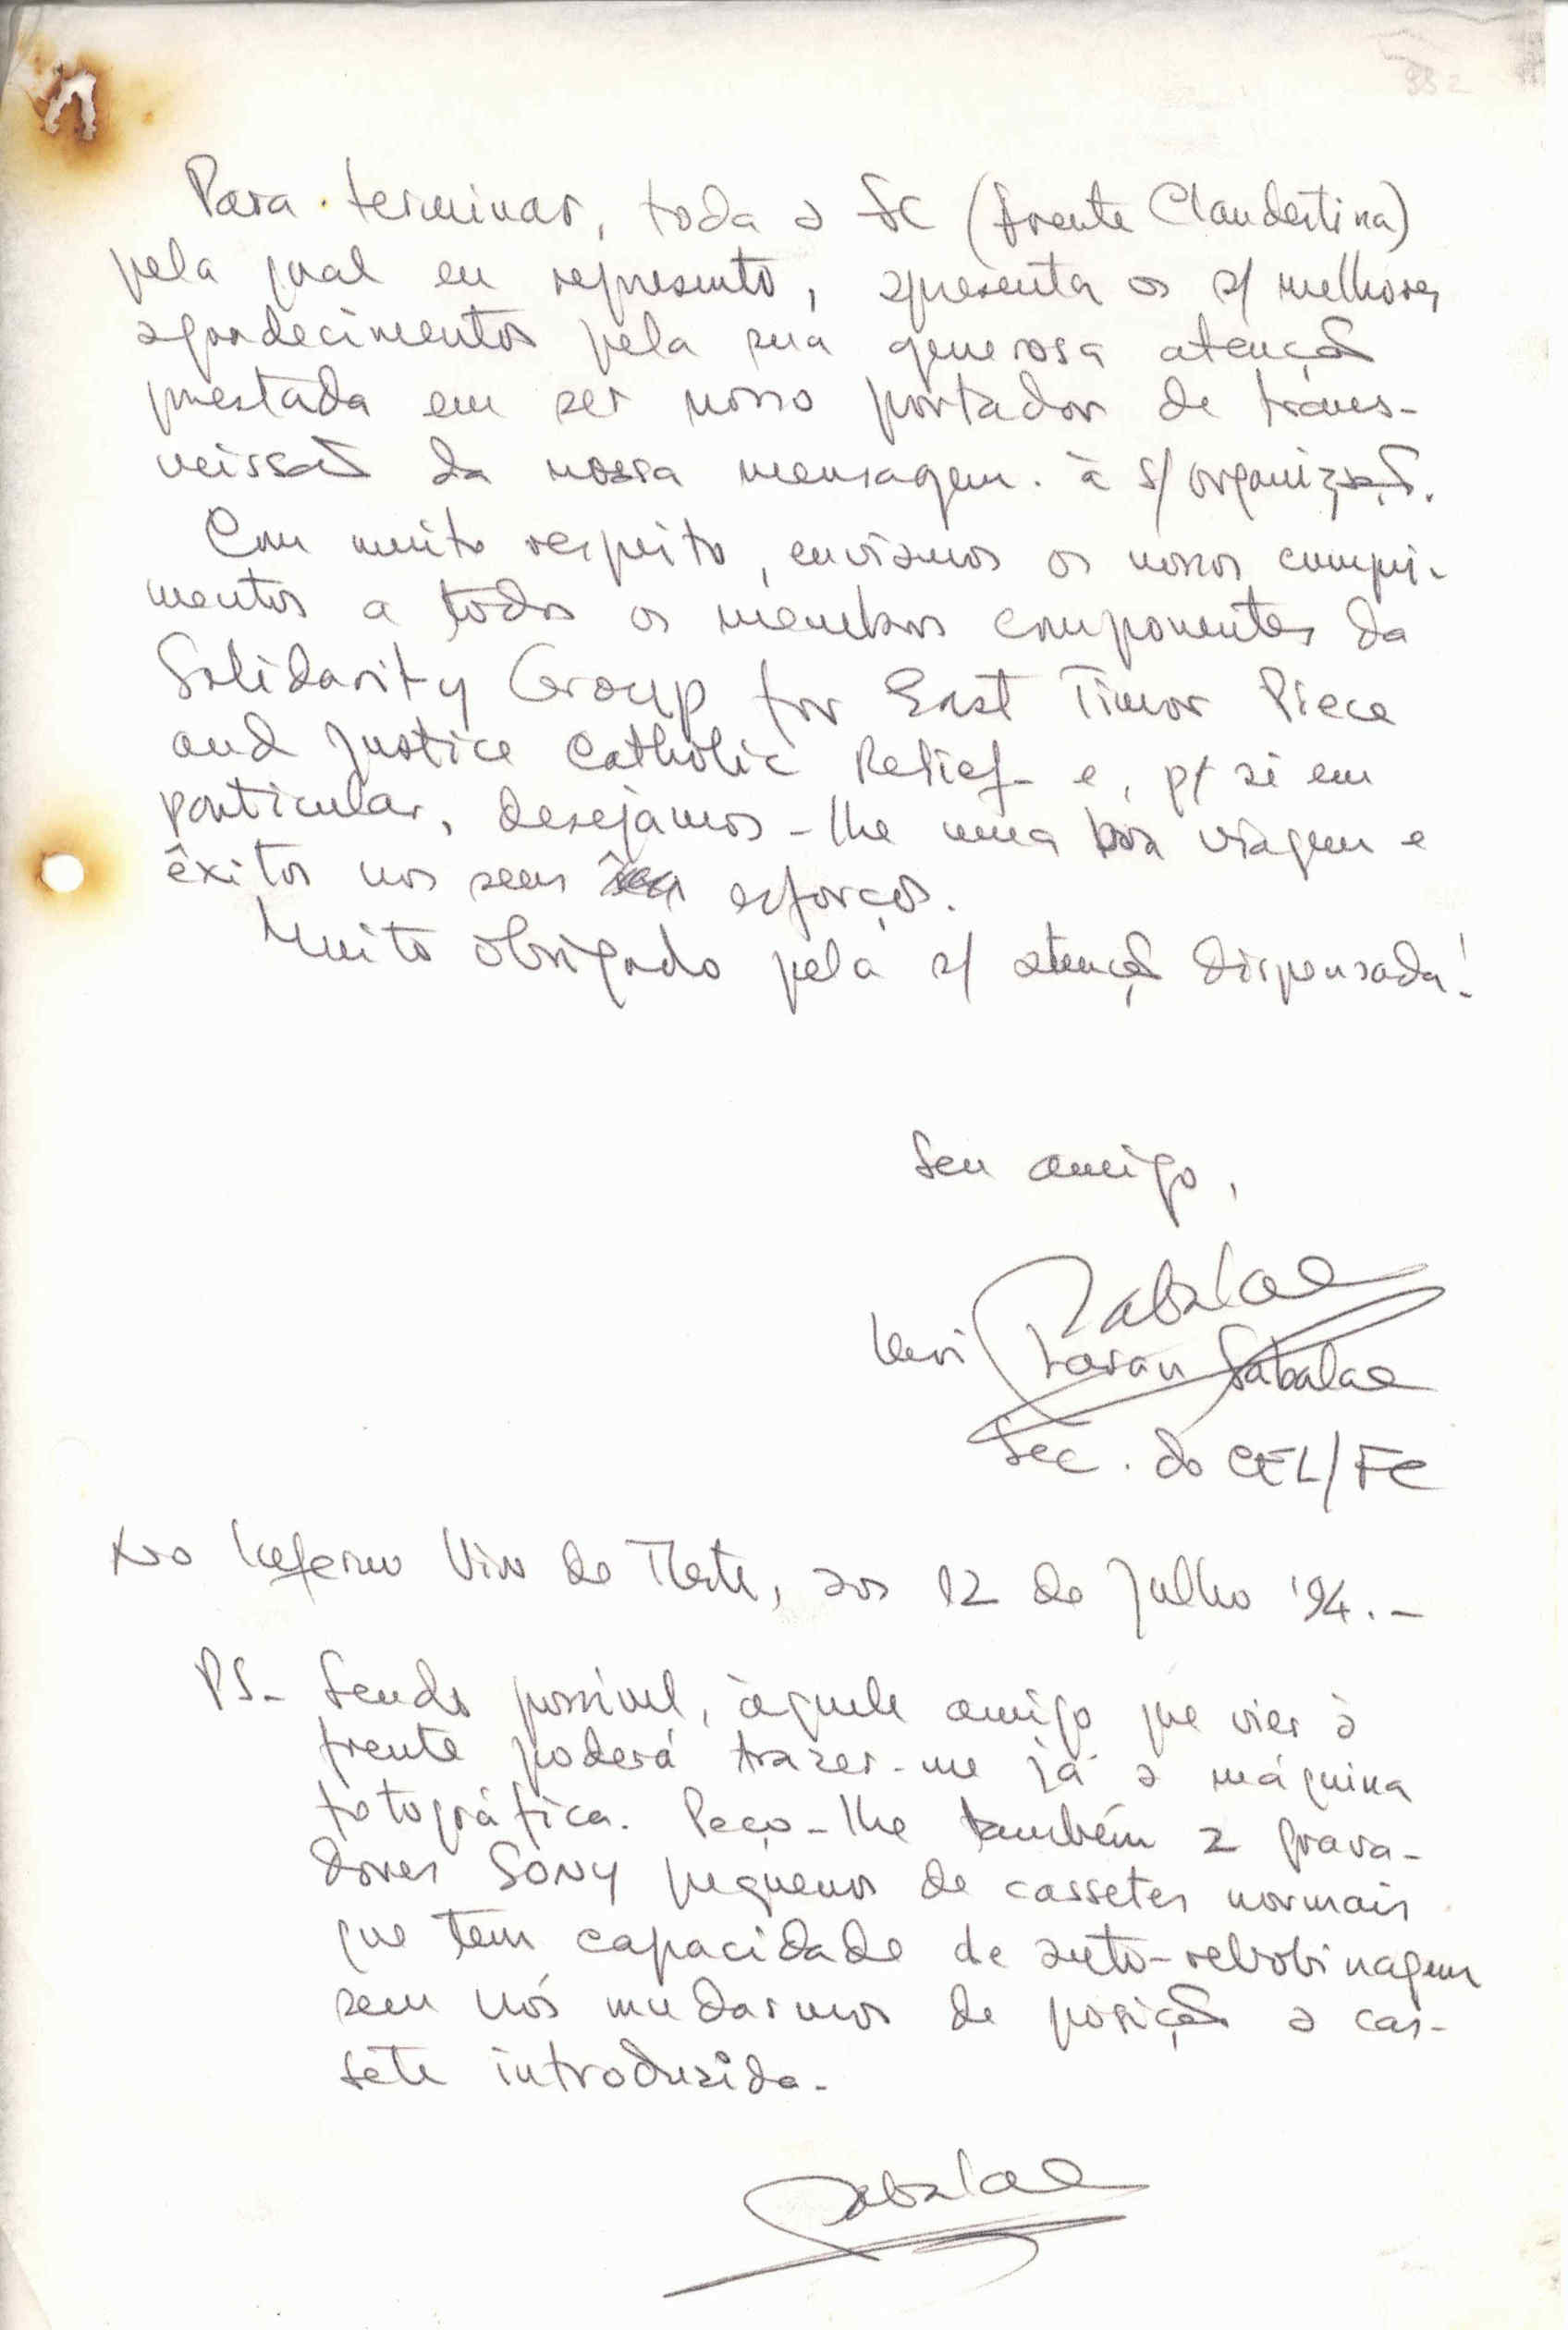 Para terminar, toda a FC (Frente Clandestina)
pela qual eu represento, apresenta os s/ melhores
agradecimentos pela sua generosa atenção
prestada em ser nosso portador de trans-
missão da nossa mensagem. à s/ organização.
Com muito respeito, enviamos os nossos cumpri-
mentos a todos os membros componentes da
Solidarity Group for East Timor Piece
and Justice Catholic Relief e, p/ si em
particular, desejamos-lhe uma boa viagem e
êxitos nos seus esforços.
Muito obrigado pela s/ atenção dispensada!
Seu amigo,
Sabalae
Keri Laran Sabalae
Sec. do CEL/FC
No Inferno Vivo do Leste, aos 12 de Julho '94.-
PS- Sendo possível, àquele amigo que vier à
frente poderá trazer-me já a máquina
fotográfica. Peço-lhe também 2 grava-
dores SONY pequenos de cassetes normais
que tem capacidade de auto-rebobinagem
sem nós mudarmos de posição a cas-
sete introduzida.
Sabalae